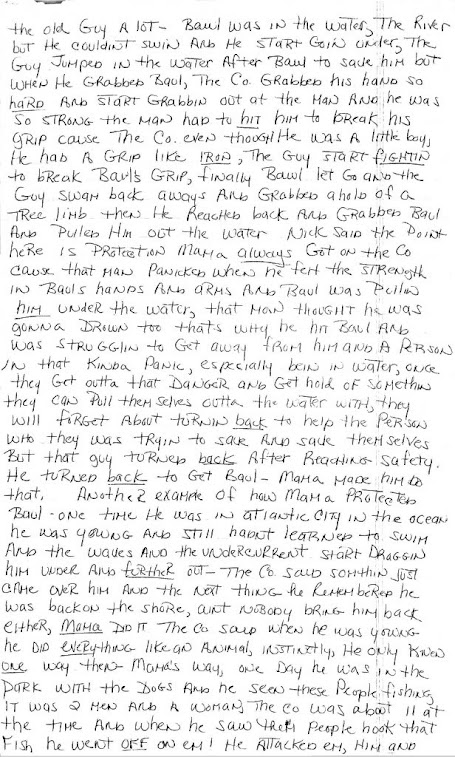 the old Guy A lot - Baul was in the water, The River
but He couldnt swim And He START Goin under, The
Guy Jumped in the water After Baul to save him but
when He Grabbed Baul, The Co. Grabbed his hand so
haRD And START Grabbin out at the man And he was
so STRONG the man had to hit him to break his
GRip cause The Co. even though He was A little boy,
He had A GRip like IRON, The Guy START fightin
to bReak Baul's GRip, finally Baul let Go and the
Guy swam back aways And Grabbed ahold of a
TRee limb then He Reached back And Grabbed Baul
And Pulled Him out the water Nick said the Point
heRe is PRotection Mama always Got on the Co
cause that man Panicked when he felt the STRength
in Bauls hands And aRms And Baul was Pullin
him under the water, that man thought he was
gonna DRown too that's why he hit Baul And
was STRugglin to Get away from him and A PeRson
in that Kinda Panic, especially bein in water, once
they Get outta that DangeR and Get hold of somethin
they can Pull themselves outta the water with, they
will foRget About tuRnin back to help the PeRson
who they was tRyin to save And save themselves
But that guy tuRned back After Reaching safety.
He tuRned back to Get Baul - Mama made him do
that, AnotheR example of how Mama PRotected
Baul - one time He was in Atlantic City in the ocean
he was young And still hadnt leaRned to swim
And the waves And the undeRcuRRent staRt DRaggin
him undeR And fuRtheR out - The Co. said somthin just
came oveR him And the next thing he RemembeRed he
was back on the shoRe, aint nobody bRing him back
eitheR, Mama did it The Co said when he was young
he did eveRything like an Animal, instinctly, He only Knew
one way then - Mama's way, one Day he was in the
PaRk with the Dogs And he seen these People fishing
it was 2 men And A woman, The Co was about 11 at
the time And when he saw them People hook that
Fish he went OFF on em! He Attacked em, Him and